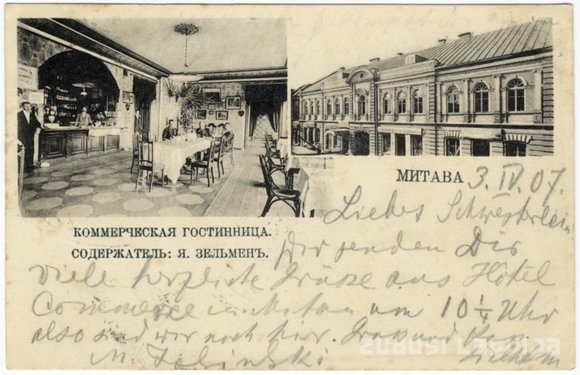 МИТАВА 3. IV. 07.
КОММЕРЧЕСКАЯ ГОСТИННИЦА.
СОДЕРЖАТЕЛЬ: Я. ЗЕЛЬМЕНЪ.
Liebes Schwesterlein
Wir senden Dir
viele herzliche Grüsse aus Hôtel
Commerce in Mitau um 10 ¼ Uhr
also sind wir noch hier. Gruss und
Wilhelm
M.
ZUDUSI LATVIJA